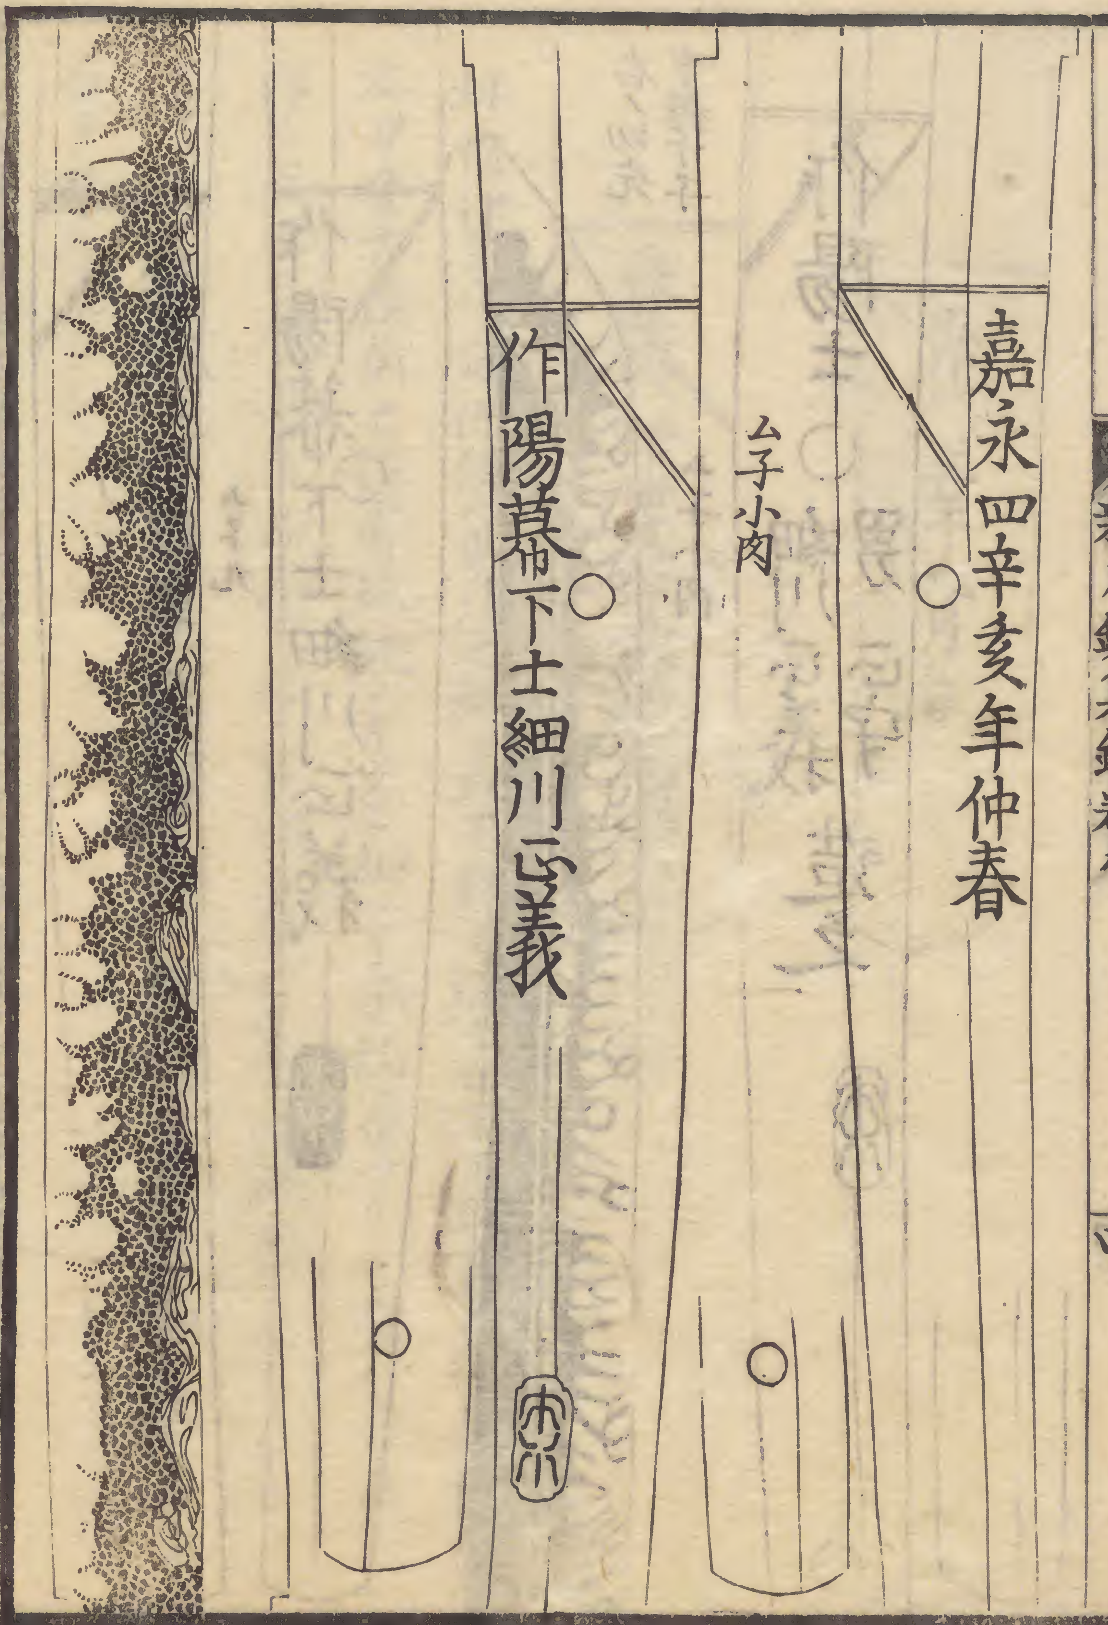 嘉永四辛亥年仲春
ム子小肉
作陽幕下士細川正義